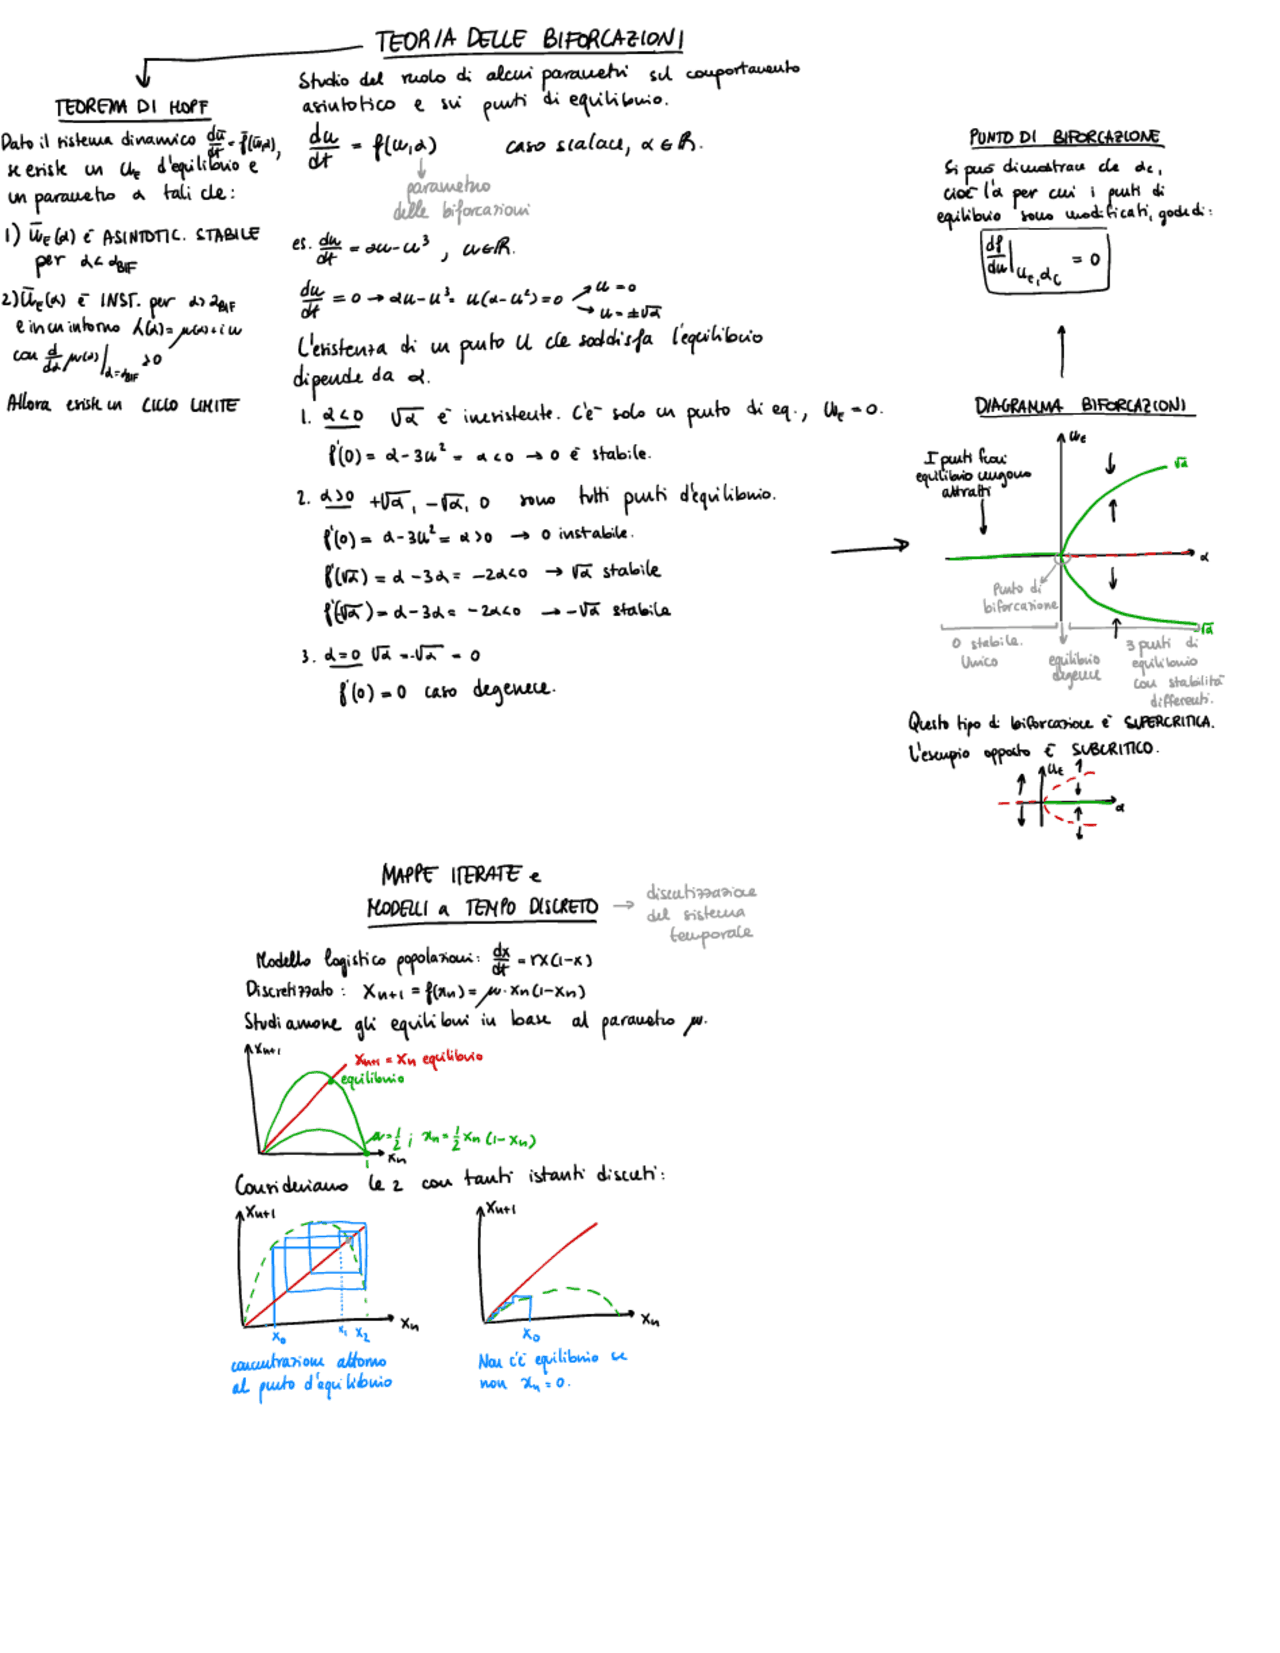 TEORIA DELLE BIFORCAZIONI
Studio del ruolo di alcuni parametri sul comportamento
asintotico e sui punti di equilibrio.
du/dt = f(u,α) caso scalare, α ∈ ℝ.
parametro
delle biforcazioni
es. du/dt = αu-u³, u∈ℝ.
du/dt = 0 → αu-u³= u(α-u²)=0 → u=0
→ u=±√α
L'esistenza di un punto u che soddisfa l'equilibrio
dipende da α.
1. α<0 √α è inesistente. C'è solo un punto di eq., uE = 0.
f'(0) = α-3u² = α<0 → 0 è stabile.
2. α>0 +√α, -√α, 0 sono tutti punti d'equilibrio.
f'(0) = α-3u² = α>0 → 0 instabile.
f'(√α) = α-3α = -2α<0 → √α stabile
f'(-√α) = α-3α = -2α<0 → -√α stabile
3. α=0 √α = -√α = 0
f'(0) = 0 caso degenere.
TEOREMA DI HOPF
Dato il sistema dinamico dū/dt = f̄(ū,α),
se esiste un uE d'equilibrio e
un parametro α tali che:
1) ūE(α) è ASINTOTIC. STABILE
per α<αBIF
2) ūE(α) è INST. per α>αBIF
e in un intorno λ(α)=μ(α)+iω
con d/dα μ(α)|α=αBIF >0
Allora esiste un CICLO LIMITE
PUNTO DI BIFORCAZIONE
Si può dimostrare che αc,
cioè l'α per cui i punti di
equilibrio sono modificati, gode di:
df/du|uE,αC = 0
DIAGRAMMA BIFORCAZIONI
I punti fuori
equilibrio vengono
attratti
uE
√α
α
Punto di
biforcazione
√α
0 stabile.
Unico
equilibrio
degenere
3 punti di
equilibrio
con stabilità
differenti.
Questo tipo di biforcazione è SUPERCRITICA.
L'esempio opposto è SUBCRITICO.
uE
α
MAPPE ITERATE e
MODELLI a TEMPO DISCRETO →
discretizzazione
del sistema
temporale
Modello logistico popolazioni: dx/dt = rx(1-x)
Discretizzato: Xn+1 = f(xn) = μ·xn(1-xn)
Studiamone gli equilibri in base al parametro μ.
Xn+1
Xn+1 = Xn equilibrio
equilibrio
μ=1/2 ; xn=1/2 xn (1-xn)
Xn
Consideriamo le 2 con tanti istanti discreti:
Xn+1
Xn
x0 x1 x2
concentrazione attorno
al punto d'equilibrio
Xn+1
Xn
x0
Non c'è equilibrio se
non xn=0.